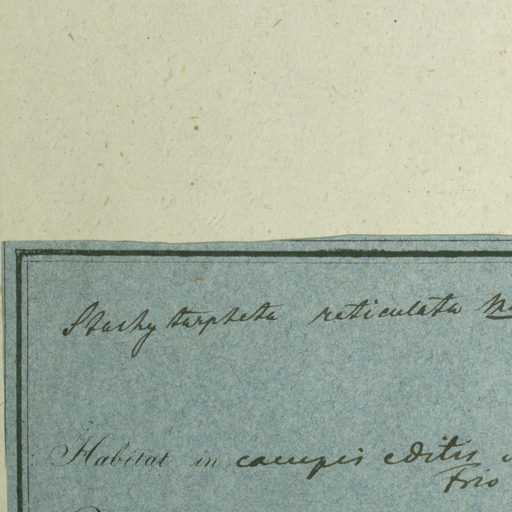 Stachytarpheta reticulata
Habitat in campis editis
Frio